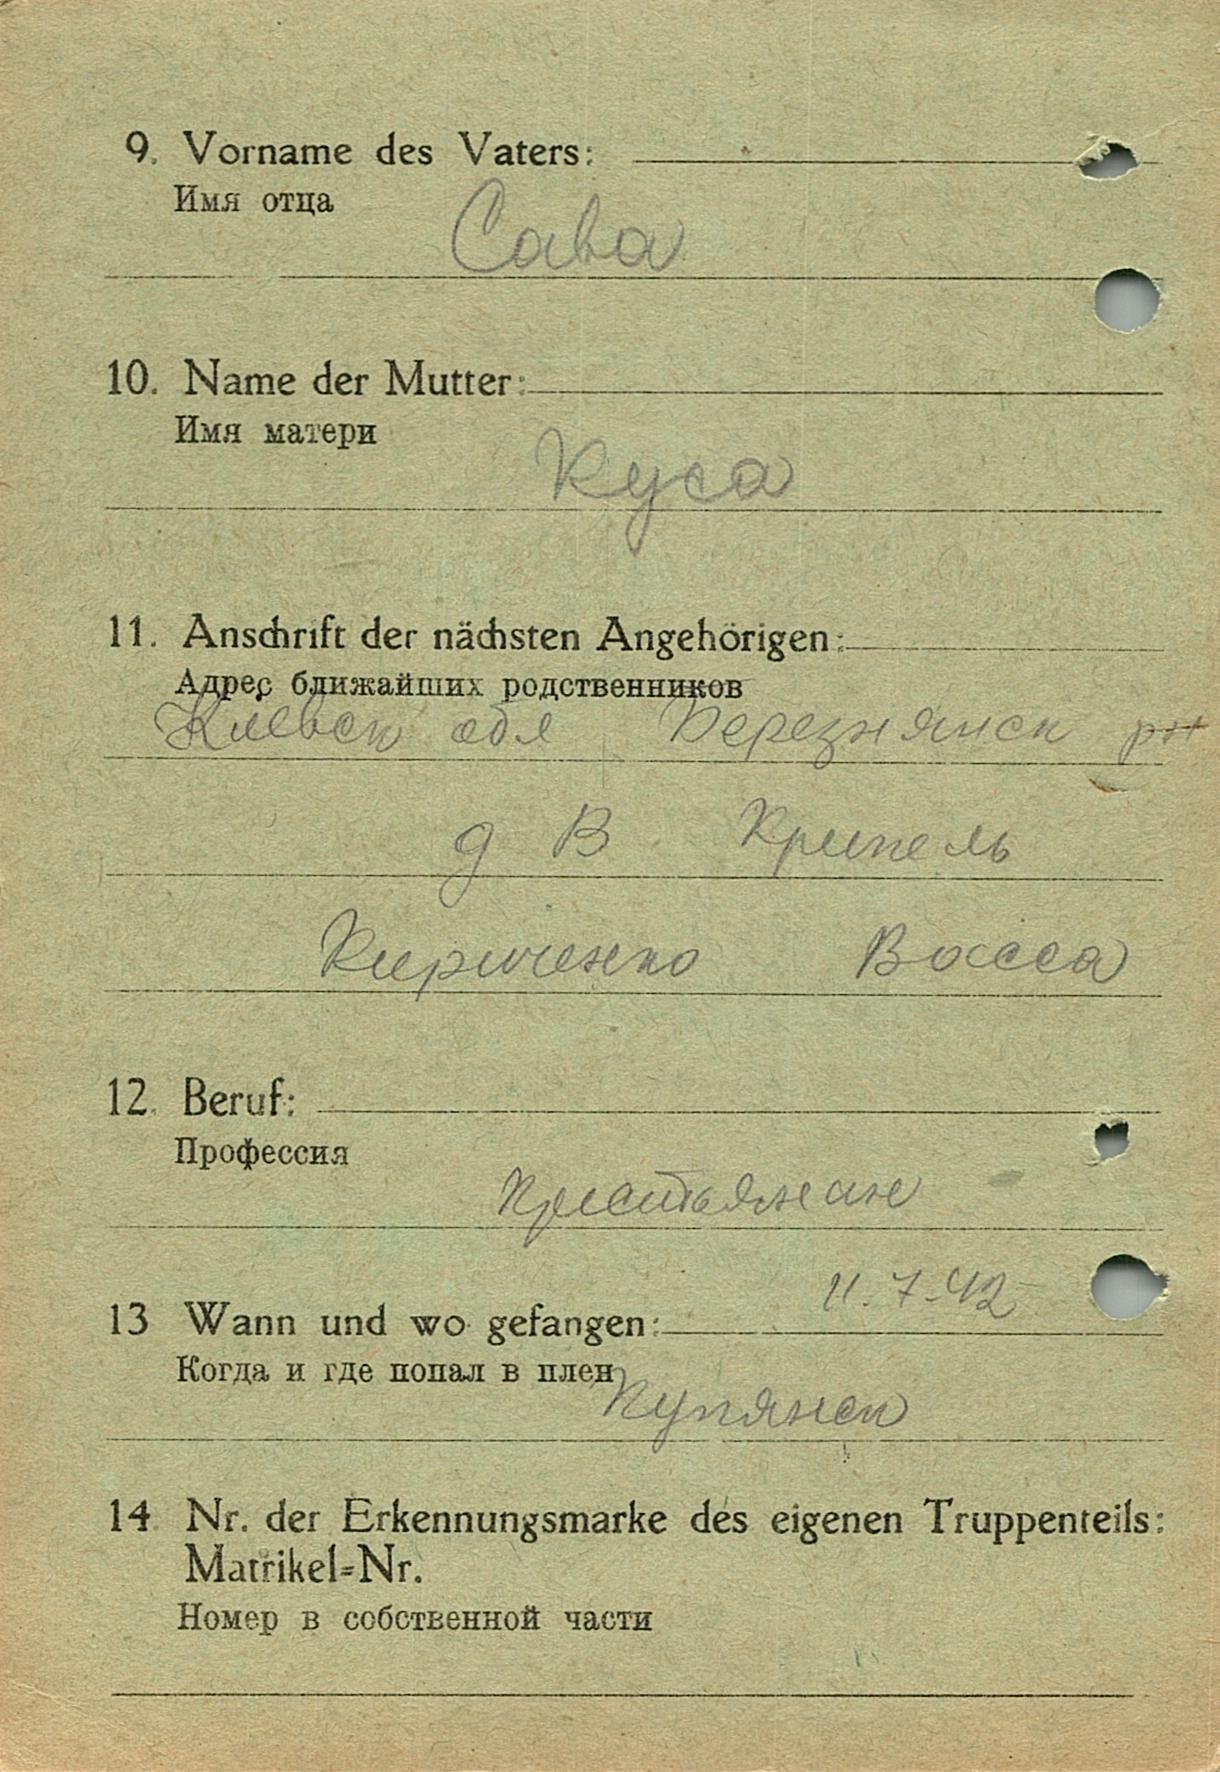 9. Vorname des Vaters:
Имя отца
Сава
10. Name der Mutter:
Имя матери
Куса
11. Anschrift der nächsten Angehörigen:
Адрес ближайших родственников
Киевск обл Березнянск рн
д В Крупель
Кириченко Васса
12. Beruf:
Профессия
Крестьянин
11.7.42
13 Wann und wo gefangen:
Когда и где попал в плен
Купянск
14 Nr. der Erkennungsmarke des eigenen Truppenteils:
Matrikel=Nr.
Номер в собственной части